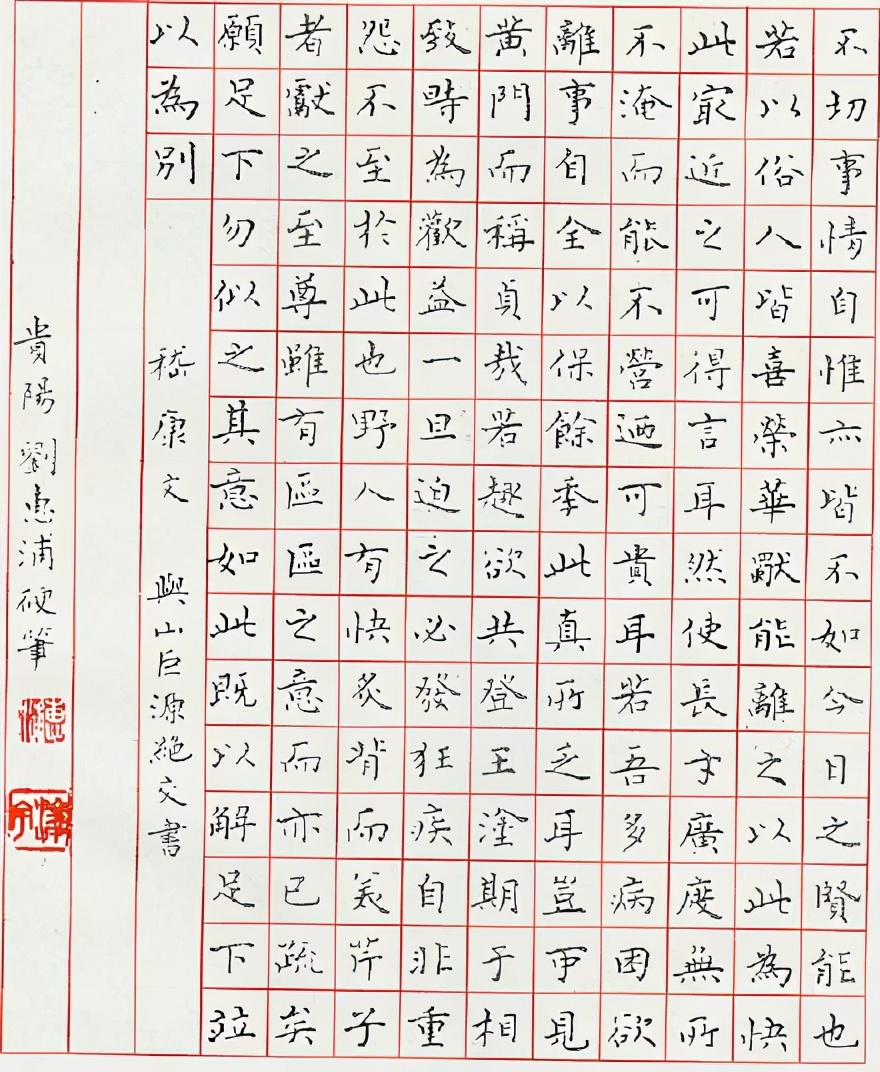 不切事情自惟亦皆不如今日之賢能也
若以俗人皆喜榮華獸能離之以此為快
此寂近之可得言耳然使長才廣度無所
不淹而能不營迺可貴耳若吾多病困欲
離事自全以保餘季此真所乏耳豈可見
黃門而稱貞哉若趣欲共登王塗期于相
致時為歡益一旦迫之必發狂疾自非重
怨不至於此也野人有快炙背而美芹子
者獻之至尊雖有區區之意而亦已疏矣
願足下勿似之其意如此既以解足下竝
以為別
嵇康文 與山巨源絶交書
貴陽劉惠浦硬筆